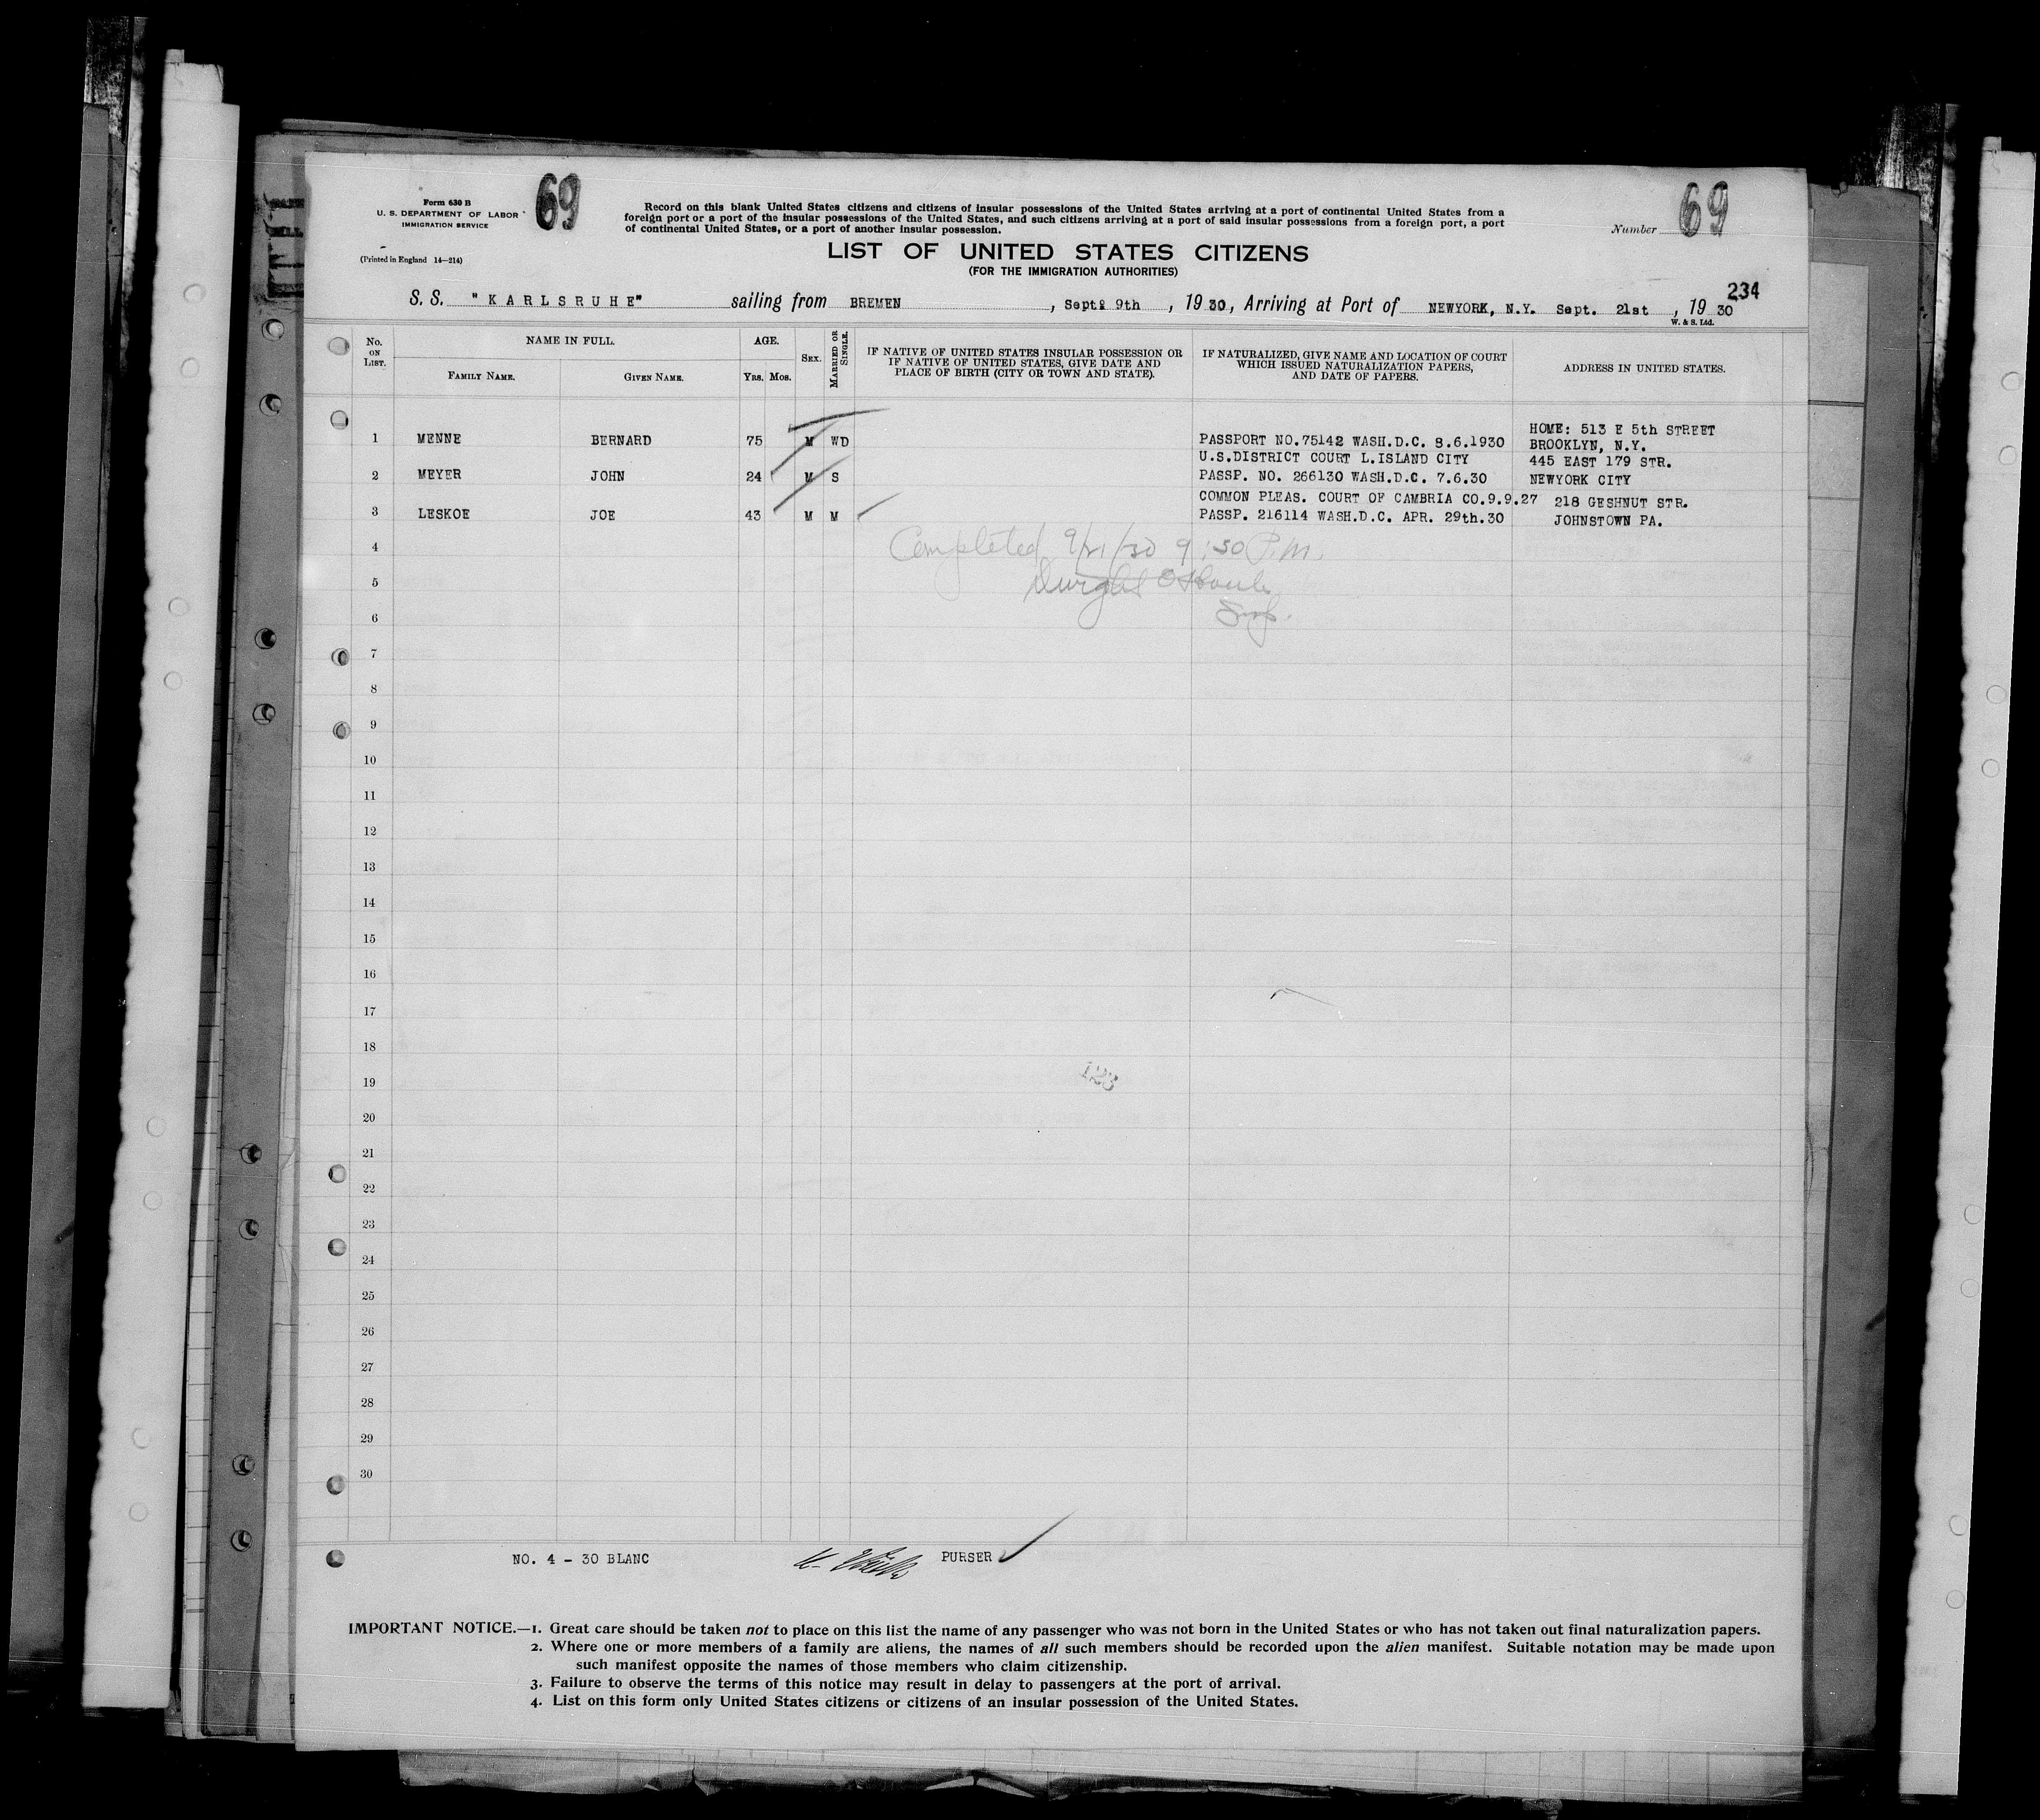 Form 630 B
U. S. DEPARTMENT OF LABOR
IMMIGRATION SERVICE
(Printed in England 14—214)
69
Record on this blank United States citizens and citizens of insular possessions of the United States arriving at a port of continental United States from a
foreign port or a port of the insular possessions of the United States, and such citizens arriving at a port of said insular possessions from a foreign port, a port
of continental United States, or a port of another insular possession.
Number 69
LIST OF UNITED STATES CITIZENS
(FOR THE IMMIGRATION AUTHORITIES)
234
S. S. "KARLSRUHE" sailing from BREMEN, Sept. 9th, 19 30, Arriving at Port of NEWYORK, N.Y. Sept. 21st, 19 30
W. & S. Ltd.
No. ON LIST.
NAME IN FULL.
FAMILY NAME. GIVEN NAME.
AGE.
YRS. MOS.
SEX.
MARRIED OR SINGLE.
IF NATIVE OF UNITED STATES INSULAR POSSESSION OR
IF NATIVE OF UNITED STATES, GIVE DATE AND
PLACE OF BIRTH (CITY OR TOWN AND STATE).
IF NATURALIZED, GIVE NAME AND LOCATION OF COURT
WHICH ISSUED NATURALIZATION PAPERS,
AND DATE OF PAPERS.
ADDRESS IN UNITED STATES.
HOME: 513 E 5th STREET
1 MENNE BERNARD 75 M WD PASSPORT NO.75142 WASH.D.C. 8.6.1930 BROOKLYN, N.Y.
U.S.DISTRICT COURT L.ISLAND CITY 445 EAST 179 STR.
2 MEYER JOHN 24 M S PASSP. NO. 266130 WASH.D.C. 7.6.30 NEWYORK CITY
COMMON PLEAS. COURT OF CAMBRIA CO.9.9.27 218 GESHNUT STR.
3 LESKOE JOE 43 M M PASSP. 216114 WASH.D.C. APR. 29th.30 JOHNSTOWN PA.
4 Completed 9/21/30 9:30 P.M.
5 Dwight
6
7
8
9
10
11
12
13
14
15
16
17
18
19 123
20
21
22
23
24
25
26
27
28
29
30
NO. 4 - 30 BLANC PURSER
IMPORTANT NOTICE.—1. Great care should be taken not to place on this list the name of any passenger who was not born in the United States or who has not taken out final naturalization papers.
2. Where one or more members of a family are aliens, the names of all such members should be recorded upon the alien manifest. Suitable notation may be made upon
such manifest opposite the names of those members who claim citizenship.
3. Failure to observe the terms of this notice may result in delay to passengers at the port of arrival.
4. List on this form only United States citizens or citizens of an insular possession of the United States.